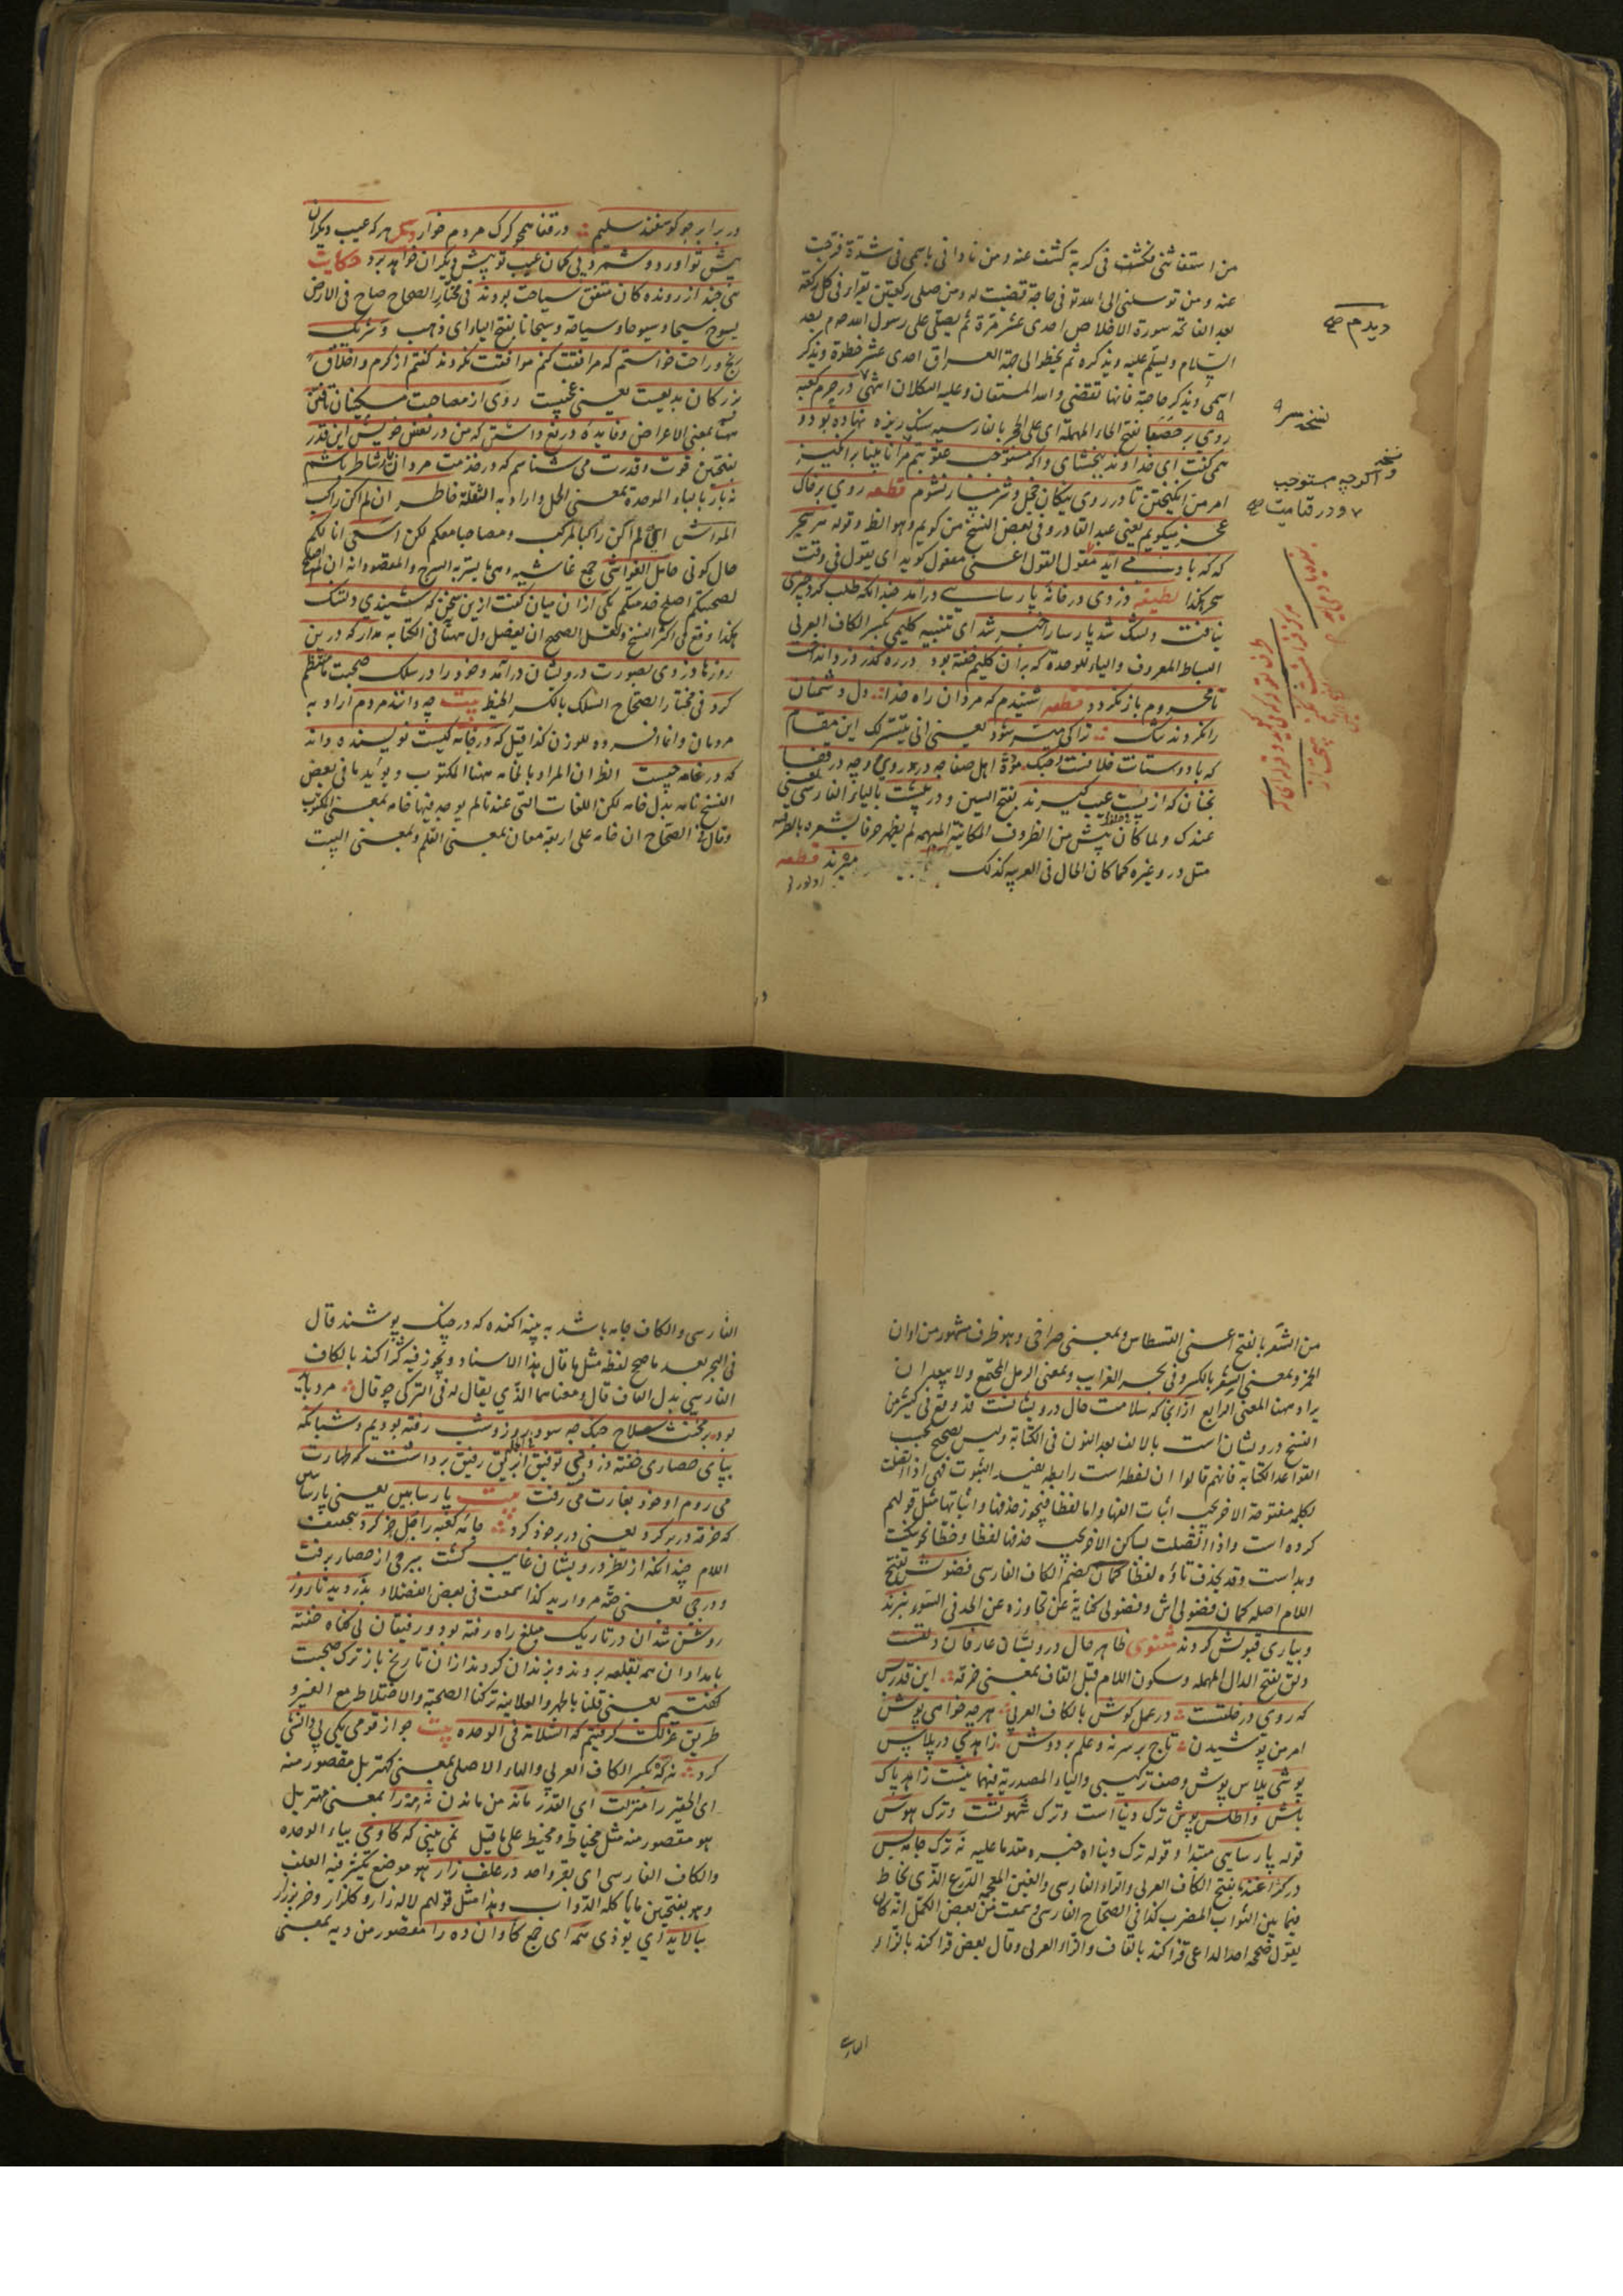 من استغاثنی فکشف فی کربة کشفت عنه ومن نادانی باسمی فی شدة فرجت
عنه ومن توسلنی الی الله تع فی حاجة قضیت له ومن صلی رکعتین یقراء فی کل رکعة
بعد الفاتحه سورة الاخلاص احدی عشر مرة ثم یصلی علی رسول الله صم بعد
السلام ویسلم علیه ویذکره ثم یخطو الی جهة العراق احدی عشر خطوة ویذکر
اسمی ویذکر حاجة فانها تقضی والله المستعان وعلیه التکلان انتهی در حرم کعبه
روی بر حصبا بفتح الحاء المهملة ای علی الحجر بالفارسیه سنک ریزه نهاده بود و
همی کفت ای خداوند ببخشای واکر مستوجب عقوبتم مرا نابینا برانکیز
امر من انکیختن تا در روی نیکان خجل وشرمسار نشوم قطعه روی بر خاک
عجز میکویم یعنی عبد القادر وفی بعض النسخ من کویم وهو اظ وقوله هر سحر
که که باد می آید مقول القول اعنی مفعول کوید ای یقول فی وقت
سحر هکذا لطیفه دزدی در خانهٔ پارسایی درآمد چندانکه طلب کرد چیزی
نیافت دلتنک شد پارسا را خبر شد ای تنبیه کلیمی بکسر الکاف العربی
البساط المعروف والیاء للوحدة که بران کلیم خفته بود در ره کذر دزد انداخت
تا محروم باز نکردد قطعه شنیدم که مردان راه خدا دل دشمنان
را نکردند تنک ترا کی میسر شود یعنی انی یتیسر لک این مقام
که با دوستانت خلافست وجنک مودّة اهل صفا چه در روی وچه در قفا
نچنان که از پست عیب کیرند بفتح السین و در پیشت بالیاء الفارسی یعنی
عندک ولما کان پیش من الظروف المکانیة المبهمه لم یظهر حرفا یشعره بالظرفیه
مثل در وغیره کما کان الحال فی العربیه کذلک میرند قطعه
دیدم صح
نسخه سر
نسخه
واکرچه مستوجب
و در قیامت صح
در برابر چو کوسفند سلیم در قفا همچو کرک مردم خوار دیکر هر که عیب دیکران
پیش تو اورد وشمرد بی کمان عیب تو پیش دیکران خواهد برد حکایت
تنی چند از روندکان متفق سیاحت بودند فی مختار الصحاح صاح فی الارض
یسوح سیحا وسیوحا وسیاحة وسیحانا بفتح الیاء ای ذهب وشریک
رنج وراحت خواستم که مرافقت کنم موافقت نکردند کفتم از کرم واخلاق
بزرکان بدیعست یعنی عجیبست روی از مصاحبت مسکینان تافتن
مهنا بمعنی الاعراض وفایده دریغ داشتن که من در نفس خویش این قدر
بفتحتین قوت وقدرت می شناسم که در خدمت مردان یار شاطر باشم
نه بار بالباء الموحدة بمعنی الحمل واراد به الثقلة خاطر ان لم اکن راکب
المواشی ای لم اکن راکبا لمرکب ومصاحبا معکم لکن اسعی انا لکم
حال کونی حامل الغواشی جمع غاشیه وهی ما یستر به السرج والمقصود انه ان لم اصلح
لصحبتکم اصلح خدمتکم یکی ازان میان کفت ازین سخن که شنیدی دلتنک
هکذا وقع فی اکثر النسخ ولعل الصحیح ان یفصل دل مهنا فی الکتابه مدار که درین
روزها دزدی بصورت درویشان درآمد وخود را در سلک صحبت ما منتظم
کرد فی مختار الصحاح السلک بالکسر الخیط بیت چه دانند مردم اراد به
مردمان وانما افرده للوزن کذا قیل که در خامه کیست نویسنده داند
که در نامه چیست اظ ان المراد بالخامه مهنا المکتوب ویؤیده ما فی بعض
النسخ نامه بدل خامه لکن اللغات التی عندنا لم یوجد فیها خامه بمعنی المکتوب
وقال فی الصحاح ان خامه علی اربعة معان بمعنی القلم وبمعنی البیت
من الشعر بالفتح اعنی القسطاس وبمعنی صراحی وهو ظرف مشهور من اوان
الخمر وبمعنی الشعر بالکسر وفی بحر الغرایب وبمعنی الرمل المجتمع ولا یبعد ان
یراد مهنا المعنی الرابع ازآنجا که سلامت حال درویشانست قد وقع فی کثیر من
النسخ درویشان است بالالف بعد النون فی الکتابة ولیس بصحیح بحسب
القواعد الکتابة فانهم قالوا ان لفظه است رابطه یفید الثبوت فهی اذا اتصلت
لکلمه مفتوحة الاخر یجب اثبات الفها واما لفظا فیجوز حذفها واثباتها مثل قولهم
کرده است واذا اتصلت بساکن الاخر یجب حذفها لفظا وخطا نحو نیکست
وبد است وقد یحذف تاؤه لفظا کمان بضم الکاف الفارسی فضولش بفتح
اللام اصله کمان فضولی اش وفضولی کنایة عن تجاوزه عن الحد فی السوء نبردند
وبیاری قبولش کردند مثنوی ظاهر حال درویشان عارفان دلقست
دلق بفتح الدال المهمله وسکون اللام قبل القاف بمعنی خرقه این قدر بس
که روی در خلقست در عمل کوش بالکاف العربی هر چه خواهی پوش
امر من پوشیدن تاج بر سر نه وعلم بر دوش زاهدی در پلاس
پوشی پلاس پوش وصف ترکیبی والیاء المصدریة فیهما نیست زاهد پاک
باش واطلس پوش ترک دنیا است وترک شهوتست وترک هوس
قوله پارسایی مبتدا وقوله ترک دنیا اه خبره مقدما علیه نه ترک جامه بس
در کژاغند بفتح الکاف العربی والزاء الفارسی والغین المعجمه الدرع الذی یخاط
فیما بین الثواب المضرب کذا فی الصحاح الفارسی وسمعت من بعض الکمل انه کان
یقول صححه احد الداعی قزاکند بالقاف والزاء العربی وقال بعض قزاکند بالزاء
الفارسی والکاف جامه باشد به پنبه اکنده که در جنک پوشند قال
فی البحر بعد ما صحح لفظه مثل ما قال هذا الاستاد ویجوز فیه کژاکند بالکاف
الفارسی بدل القاف قال ومعناهما الذی یقال له فی الترکی چوقال مرد باید
بود بر مخنث سلاح جنک چه سود روز وشب رفته بودیم وشبانکه
بپای حصاری خفته دزد بی توفیق ابریق رفیق برداشت که بطهارت
می روم او خود بغارت می رفت بیت پارسا بین یعنی پارسایی
که خرقه در بر کرد یعنی در بر خود کرد جامهٔ کعبه را جل خر کرد بتخفیف
اللام چندانکه از نظر درویشان غایب کشت ببرجی از حصار برفت
ودرجی یعنی حقه مروارید کذا سمعت فی بعض الفضلاء بدزدید تا روز
روشن شد آن در تاریک مبلغ راه رفته بود ورفیقان بی کناه خفته
بامدادان همه بقلعه بردند وبزندان کردند ازان تاریخ باز ترک صحبت
کفتیم یعنی قلنا بالجهر والعلانیة ترکنا الصحبة والاختلاط مع الغیر و
طریق عزلت کرفتیم که السلامة فی الوحده بیت چو از قومی یکی بی دانشی
کرد نه که بکسر الکاف العربی والهاء الاصلی بمعنی کهتر بل مقصور منه
ای الحقیر را منزلت ای القدر ماند من ماندن نه مه را بمعنی مهتر بل
هو مقصور منه مثل مخیاط ومخیط علی ما قیل نمی بینی که کاوی بیاء الوحده
والکاف الفارسی ای بقر واحد در علف زار هو موضع یکثر فیه العلف
وهو بفتحتین ما یأکله الدواب وهذا مثل قولهم لاله زار وکلزار وخربزه زار
بیالاید ای یوذی همه ای جمع کاوان ده را مقصور من دیه بمعنی
الفارسی